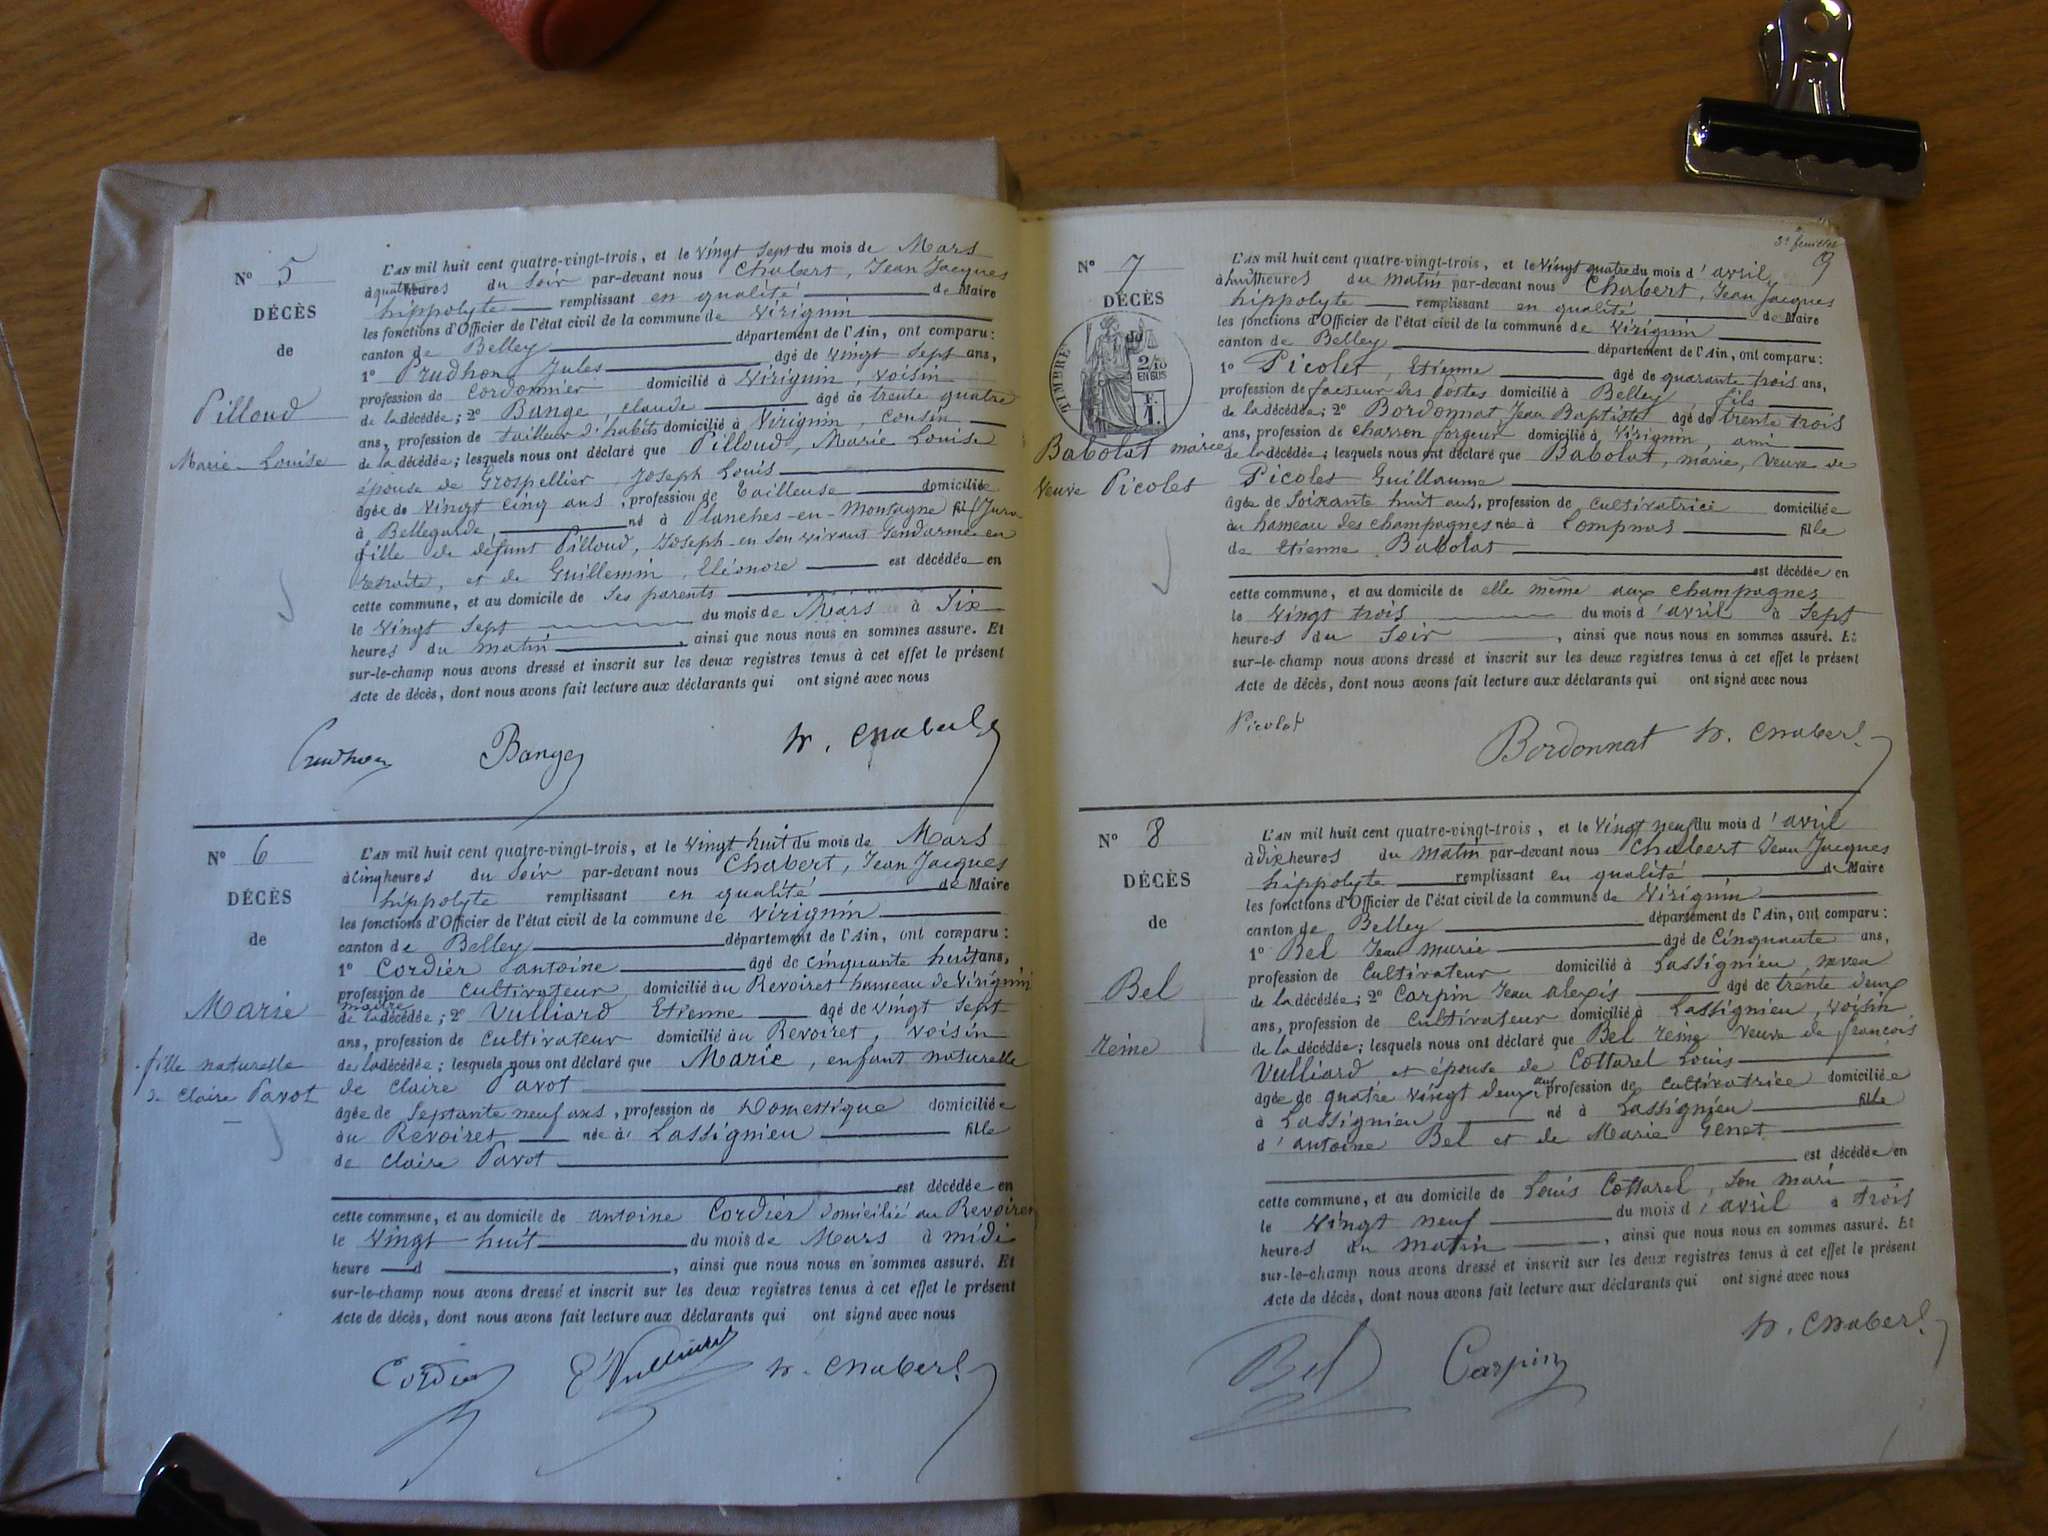 N° 5
DÉCÈS
de
Pilloud
Marie-Louise
L'AN mil huit cent quatre-vingt-trois, et le vingt sept du mois de Mars
à quatre heures du Soir par-devant nous Chabert, Jean Jacques
hippolyte remplissant en qualité de Maire
les fonctions d'Officier de l'état civil de la commune de Virignin
canton de Belley département de l'Ain, ont comparu:
1° Prudhon Jules âgé de vingt sept ans,
profession de Cordonnier domicilié à Virignin, voisin
de la décédée; 2° Bange, claude âgé de trente quatre
ans, profession de tailleur d'habits domicilié à Virignin, cousin
de la décédée; lesquels nous ont déclaré que Pilloud, Marie Louise
épouse de Grospellier, Joseph Louis
âgée de vingt cinq ans, profession de Tailleuse domiciliée
à Bellegarde, né à Planches-en-Montagne fil (Jura
fille de défunt Pilloud, Joseph en son vivant Gendarme en
retraite, et de Guillemin, Eléonore est décédée en
cette commune, et au domicile de Ses parents
le vingt sept du mois de Mars à Six
heures du matin, ainsi que nous nous en sommes assuré. Et
sur-le-champ nous avons dressé et inscrit sur les deux registres tenus à cet effet le présent
Acte de décès, dont nous avons fait lecture aux déclarants qui ont signé avec nous
Prudhon Bange h. Chabert
N° 6
DÉCÈS
de
Marie
fille naturelle
de Claire Pavot
L'AN mil huit cent quatre-vingt-trois, et le vingt huit du mois de Mars
à cinq heures du Soir par-devant nous Chabert, Jean Jacques
hippolyte remplissant en qualité de Maire
les fonctions d'Officier de l'état civil de la commune de Virignin
canton de Belley département de l'Ain, ont comparu:
1° Cordier antoine âgé de cinquante huit ans,
profession de cultivateur domicilié au Revoiret hameau de Virignin
maitre
de la décédée; 2° Vulliard Etienne âgé de vingt sept
ans, profession de cultivateur domicilié au Revoiret, voisin
de la décédée; lesquels nous ont déclaré que Marie, enfant naturelle
de Claire Pavot
âgée de Septante neuf ans, profession de Domestique domiciliée
au Revoiret, née à Lassignieu fille
de Claire Pavot
est décédée en
cette commune, et au domicile de antoine Cordier domicilié au Revoiret
le vingt huit du mois de Mars à midi
heure d, ainsi que nous nous en sommes assuré. Et
sur-le-champ nous avons dressé et inscrit sur les deux registres tenus à cet effet le présent
Acte de décès, dont nous avons fait lecture aux déclarants qui ont signé avec nous
Cordier E Vulliard h. Chabert
3e feuillet
N° 7
DÉCÈS
de
TIMBRE
2/10
EN SUS
F.
1.
Babolat marie
Veuve Picolet
L'AN mil huit cent quatre-vingt-trois, et le vingt quatre du mois d'avril
à huit heures du matin par-devant nous Chabert, Jean Jacques
hippolyte remplissant en qualité de Maire
les fonctions d'Officier de l'état civil de la commune de Virignin
canton de Belley département de l'Ain, ont comparu:
1° Picolet, Etienne âgé de quarante trois ans,
profession de facteur des Postes domicilié à Belley, fils
de la décédée; 2° Bordonnat Jean Baptiste âgé de trente trois
ans, profession de charron forgeur domicilié à Virignin, ami
de la décédée; lesquels nous ont déclaré que Babolat, marie, veuve de
Picolet Guillaume
âgée de Soixante huit ans, profession de cultivatrice domiciliée
au hameau des champagnes née à Lompnas fille
de Etienne Babolat
est décédée en
cette commune, et au domicile de elle même aux champagnes
le vingt trois du mois d'avril à Sept
heures du Soir, ainsi que nous nous en sommes assuré. Et
sur-le-champ nous avons dressé et inscrit sur les deux registres tenus à cet effet le présent
Acte de décès, dont nous avons fait lecture aux déclarants qui ont signé avec nous
Picolet Bordonnat h. Chabert
N° 8
DÉCÈS
de
Bel
reine
L'AN mil huit cent quatre-vingt-trois, et le vingt neuf du mois d'avril
à dix heures du matin par-devant nous Chabert Jean Jacques
hippolyte remplissant en qualité de Maire
les fonctions d'Officier de l'état civil de la commune de Virignin
canton de Belley département de l'Ain, ont comparu:
1° Bel Jean marie âgé de Cinquante ans,
profession de Cultivateur domicilié à Lassignieu, neveu
de la décédée; 2° Carpin Jean alexis âgé de trente deux
ans, profession de Cultivateur domicilié à Lassignieu, voisin
de la décédée; lesquels nous ont déclaré que Bel reine veuve de françois
Vulliard et épouse de Cottarel Louis
âgée de quatre vingt deux ans profession de cultivatrice domiciliée
à Lassignieu, né à Lassignieu fille
d'antoine Bel et de Marie Genet
est décédée en
cette commune, et au domicile de Louis Cottarel, son mari
le vingt neuf du mois d'avril à trois
heures du matin, ainsi que nous nous en sommes assuré. Et
sur-le-champ nous avons dressé et inscrit sur les deux registres tenus à cet effet le présent
Acte de décès, dont nous avons fait lecture aux déclarants qui ont signé avec nous
Bel Carpin h. Chabert